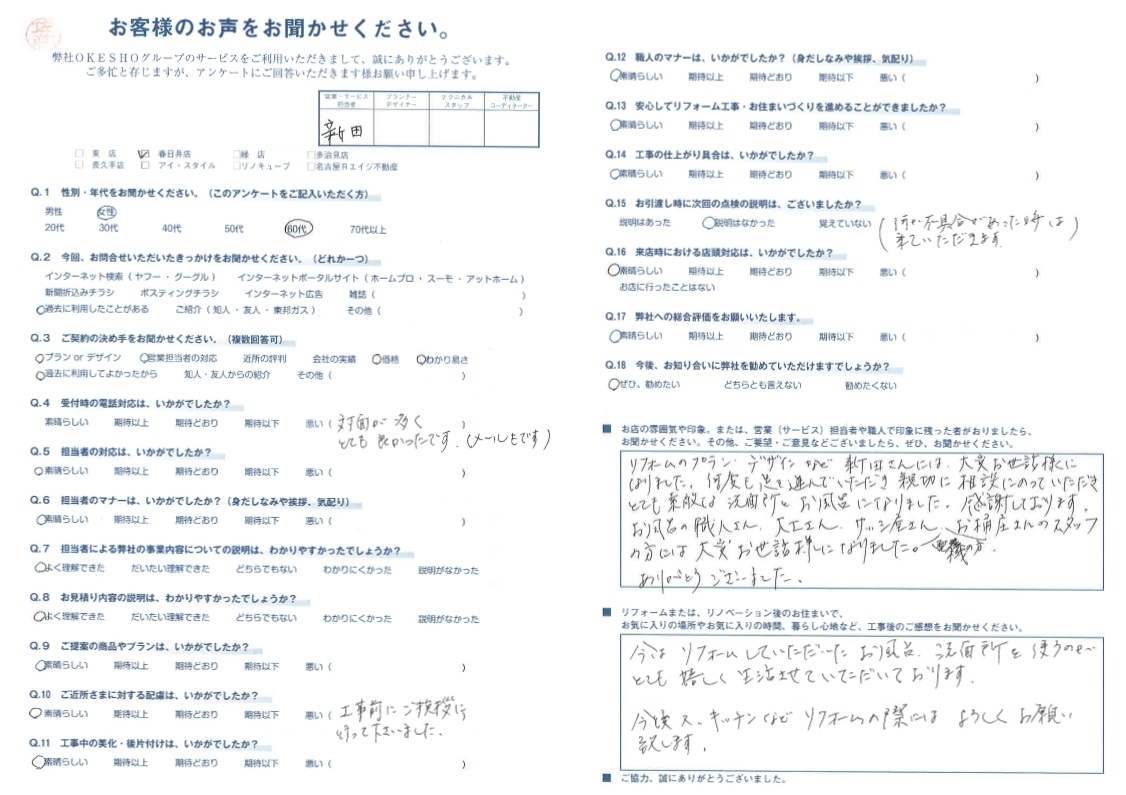 お客様のお声をお聞かせください。
弊社OKESHOグループのサービスをご利用いただきまして、誠にありがとうございます。
ご多忙と存じますが、アンケートにご回答いただきます様お願い申し上げます。
営業・サービス担当者 プランナーデザイナー テクニカルスタッフ 不動産コーディネーター
新田
□ 東店 ☑ 春日井店 □緑店 □多治見店
□ 長久手店 □ アイ・スタイル □リノキューブ □名古屋Rエイジ不動産
Q.1 性別・年代をお聞かせください。(このアンケートをご記入いただく方)
男性 女性
20代 30代 40代 50代 60代 70代以上
Q.2 今回、お問合せいただいたきっかけをお聞かせください。(どれか一つ)
インターネット検索(ヤフー・グーグル) インターネットポータルサイト(ホームプロ・スーモ・アットホーム)
新聞折込みチラシ ポスティングチラシ インターネット広告 雑誌( )
過去に利用したことがある ご紹介(知人・友人・東邦ガス) その他( )
Q.3 ご契約の決め手をお聞かせください。(複数回答可)
プラン or デザイン 営業担当者の対応 近所の評判 会社の実績 価格 わかり易さ
過去に利用してよかったから 知人・友人からの紹介 その他( )
Q.4 受付時の電話対応は、いかがでしたか?
素晴らしい 期待以上 期待どおり 期待以下 悪い( 対面が多く
とても良かったです。(メールもです)
Q.5 担当者の対応は、いかがでしたか?
素晴らしい 期待以上 期待どおり 期待以下 悪い( )
Q.6 担当者のマナーは、いかがでしたか?(身だしなみや挨拶、気配り)
素晴らしい 期待以上 期待どおり 期待以下 悪い( )
Q.7 担当者による弊社の事業内容についての説明は、わかりやすかったでしょうか?
よく理解できた だいたい理解できた どちらでもない わかりにくかった 説明がなかった
Q.8 お見積り内容の説明は、わかりやすかったでしょうか?
よく理解できた だいたい理解できた どちらでもない わかりにくかった 説明がなかった
Q.9 ご提案の商品やプランは、いかがでしたか?
素晴らしい 期待以上 期待どおり 期待以下 悪い( )
Q.10 ご近所さまに対する配慮は、いかがでしたか?
素晴らしい 期待以上 期待どおり 期待以下 悪い( 工事前にご挨拶に
行って下さいました。
Q.11 工事中の美化・後片付けは、いかがでしたか?
素晴らしい 期待以上 期待どおり 期待以下 悪い( )
Q.12 職人のマナーは、いかがでしたか?(身だしなみや挨拶、気配り)
素晴らしい 期待以上 期待どおり 期待以下 悪い( )
Q.13 安心してリフォーム工事・お住まいづくりを進めることができましたか?
素晴らしい 期待以上 期待どおり 期待以下 悪い( )
Q.14 工事の仕上がり具合は、いかがでしたか?
素晴らしい 期待以上 期待どおり 期待以下 悪い( )
Q.15 お引渡し時に次回の点検の説明は、ございましたか?
説明はあった 説明はなかった 覚えていない (何か不具合があった時は
来ていただきます。)
Q.16 来店時における店頭対応は、いかがでしたか?
素晴らしい 期待以上 期待どおり 期待以下 悪い( )
お店に行ったことはない
Q.17 弊社への総合評価をお願いいたします。
素晴らしい 期待以上 期待どおり 期待以下 悪い( )
Q.18 今後、お知り合いに弊社を勧めていただけますでしょうか?
ぜひ、勧めたい どちらとも言えない 勧めたくない
■ お店の雰囲気や印象。または、営業(サービス)担当者や職人で印象に残った者がおりましたら、
お聞かせください。その他、ご要望・ご意見などございましたら、ぜひ、お聞かせください。
リフォームのプラン・デザインなど 新田さんには、大変お世話様に
なりました。何度も足を運んでいただき親切に相談にのっていただき
とても素敵な洗面所とお風呂になりました。感謝しております。
お風呂の職人さん、大工さん、サッシ屋さん、お桶庄さんのスタッフ
の方には大変お世話様になりました。
ありがとうございました。
■ リフォームまたは、リノベーション後のお住まいで、
お気に入りの場所やお気に入りの時間、暮らし心地など、工事後のご感想をお聞かせください。
今は リフォームしていただいた お風呂、洗面所を使うのが
とても嬉しく生活させていただいております。
今後又、キッチンなど リフォームの際には よろしくお願い
致します。
■ ご協力、誠にありがとうございました。